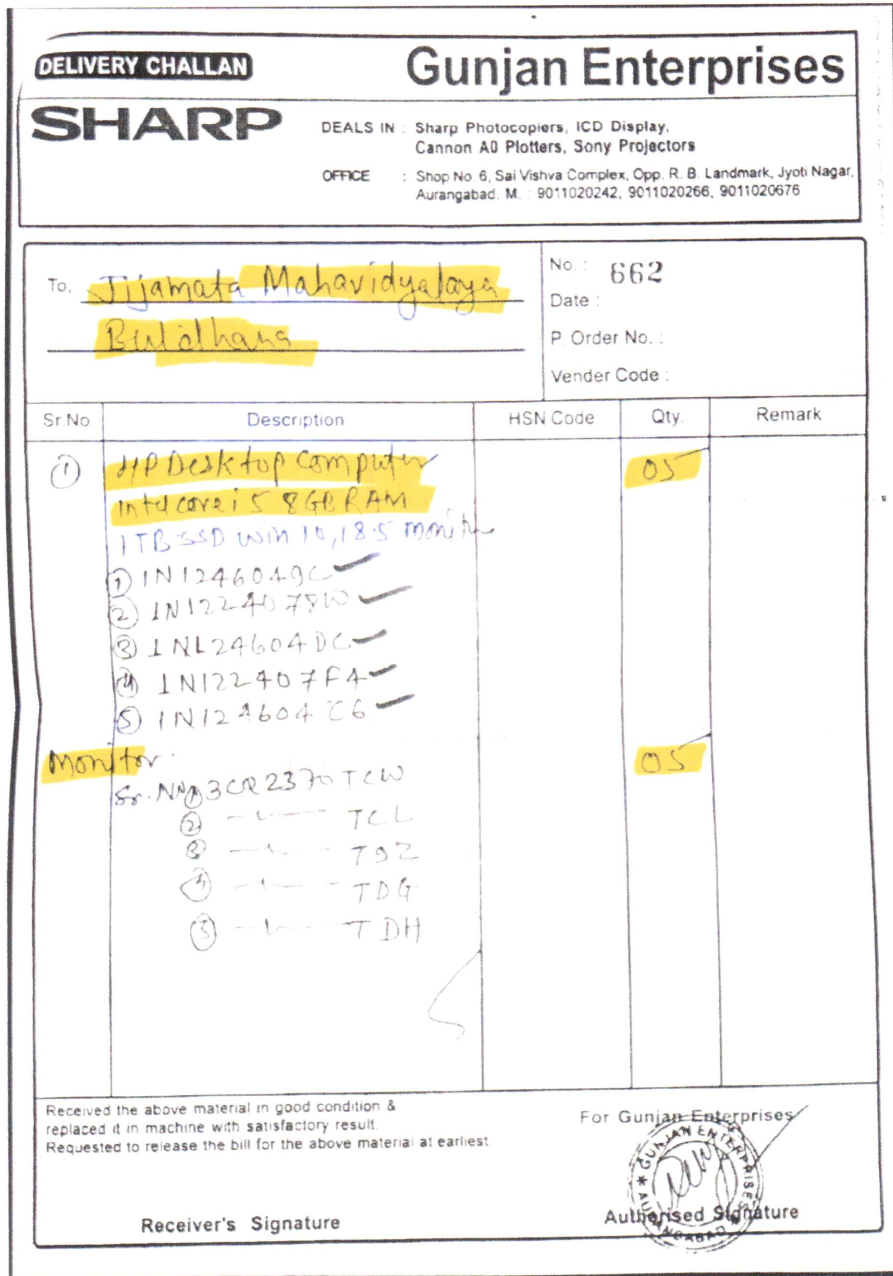 DELIVERY CHALLAN
Gunjan Enterprises
SHARP
DEALS IN : Sharp Photocopiers, ICD Display,
Cannon A0 Plotters, Sony Projectors
OFFICE : Shop No. 6, Sai Vishva Complex, Opp. R. B. Landmark, Jyoti Nagar,
Aurangabad. M. : 9011020242, 9011020266, 9011020676
To, Jijamata Mahavidyalaya
Buldhana
No. : 662
Date :
P. Order No. :
Vender Code :
Sr.No Description HSN Code Qty. Remark
① HP Desktop Computer 05
Intel core i5 8GB RAM
1TB SSD Win 10, 18.5 monitor
① 1N1246049C
② 1N1224078W
③ 1NL24604DC
④ 1N122407F4
⑤ 1N124604C6
Monitor. 05
Sr. No ① 3CR2370TCW
② -"- TCL
③ -"- T9Z
④ -"- TDG
⑤ -"- TDH
Received the above material in good condition &
replaced it in machine with satisfactory result.
Requested to release the bill for the above material at earliest
For Gunjan Enterprises
GUNJAN ENTERPRISES * AURANGABAD *
Receiver's Signature
Authorised Signature